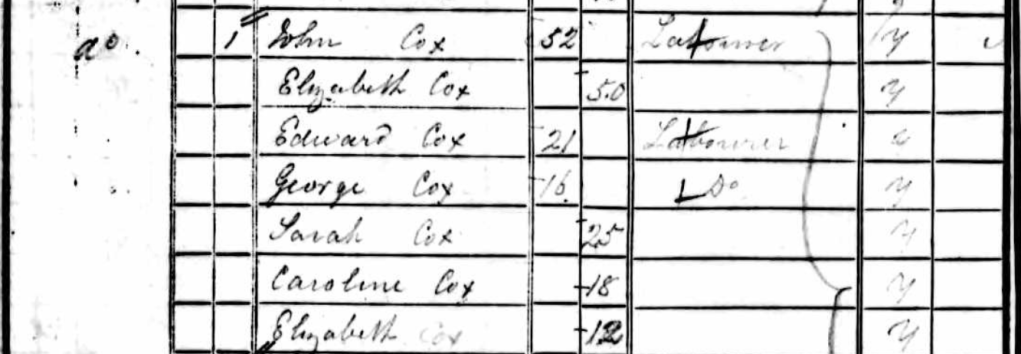 do. 1 John Cox 52 Labourer y
Elizabeth Cox 50 y
Edward Cox 21 Labourer y
George Cox 16 Do y
Sarah Cox 25 y
Caroline Cox 18 y
Elizabeth Cox 12 y